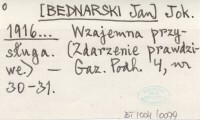 [BEDNARSKI Jan] Jok.
1916... Wzajemna przy-
sługa. (Zdarzenie prawdzi-
we.) — Gaz. Podh. 4, nr
30-31.
BT 1004 / 0099